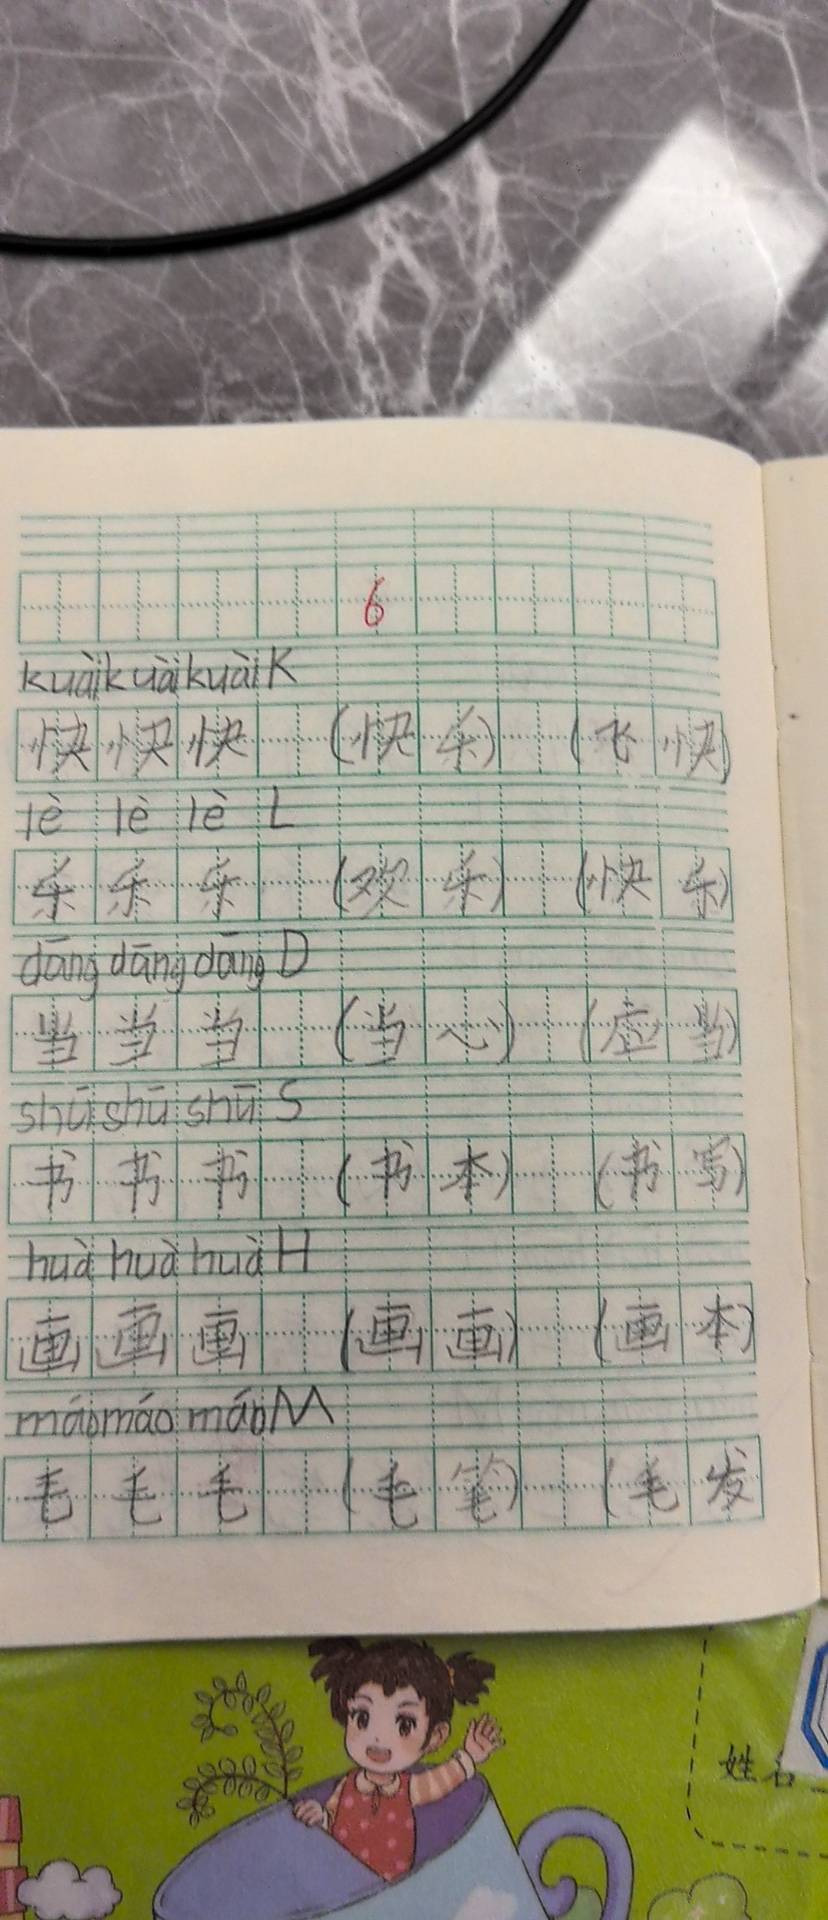 6
kuài kuài kuài K
快 快 快 (快 乐) (飞 快)
lè lè lè L
乐 乐 乐 (欢 乐) (快 乐)
dāng dāng dāng D
当 当 当 (当 心) (应 当)
shū shū shū S
书 书 书 (书 本) (书 写)
huà huà huà H
画 画 画 (画 画) (画 本)
máo máo máo M
毛 毛 毛 (毛 笔) (毛 发
姓名